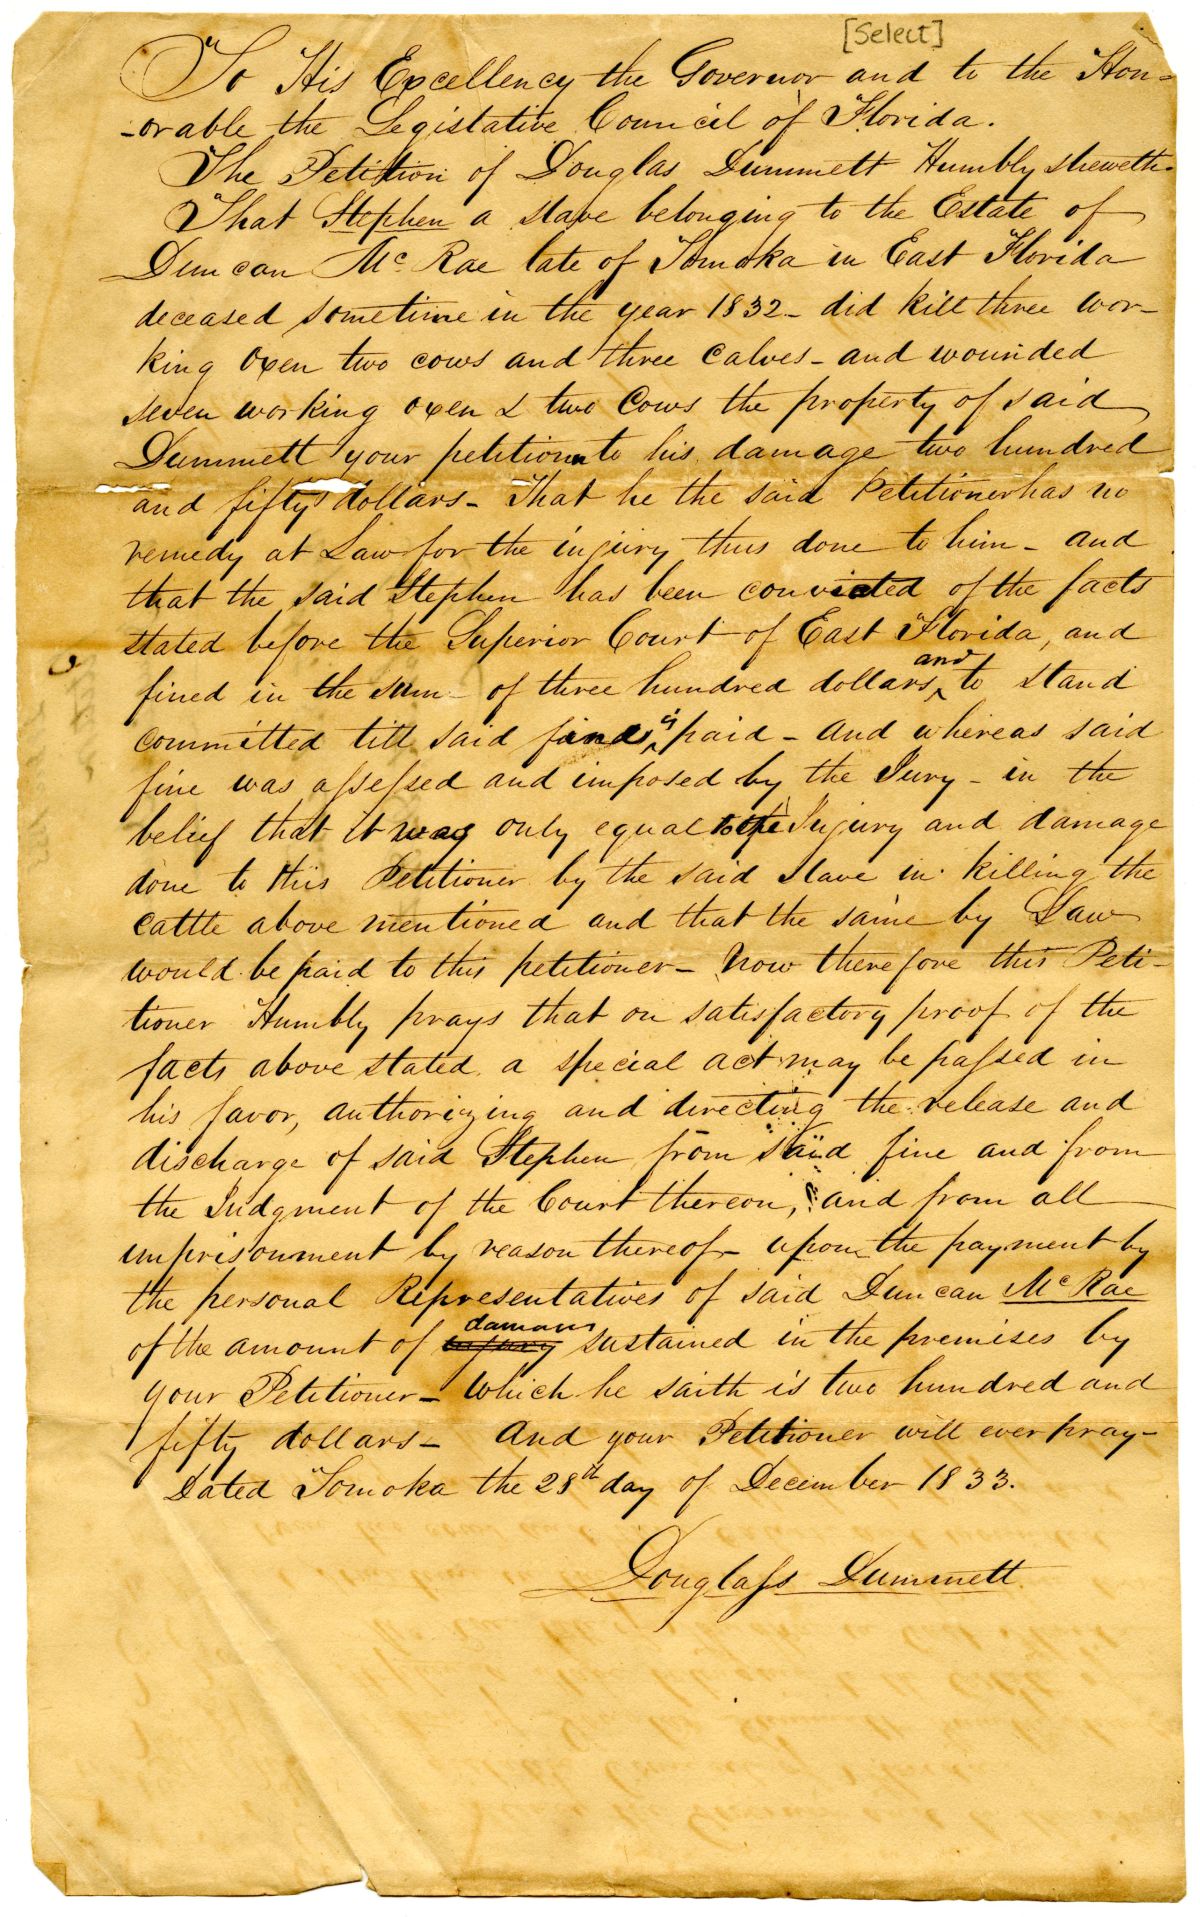 [Select]
To His Excellency the Governor and to the Hon=
-orable the Legistative Council of Florida.
The Petition of Douglas Dummett Humbly sheweth.
That Stephen a slave belonging to the Estate of
Duncan Mc Rae late of Tomoka in East Florida
deceased sometime in the year 1832 - did kill three wor-
king oxen two cows and three calves - and wounded
seven working oxen & two Cows the property of said
Dummett your petitioner to his damage two hundred
and fifty dollars - That he the said Petitioner has no
remedy at Law for the injury thus done to him - and
that the said Stephen has been convicted of the facts
stated before the Superior Court of East Florida, and
fined in the sum - of three hundred dollars, and to stand
committed till said fine is paid - and whereas said
fine was assessed and imposed by the Jury - in the
belief that it was only equal to the Injury and damage
done to this Petitioner by the said slave in killing the
cattle above mentioned and that the same by Law
would be paid to this petitioner - Now therefore this Peti-
tioner Humbly prays that on satisfactory proof of the
facts above stated a special act may be passed in
his favor, authorizing and directing the release and
discharge of said Stephen from said fine and from
the Judgment of the Court thereon, and from all
imprisonment by reason thereof - upon the payment by
the personal Representatives of said Duncan Mc Rae
of the amount of injury damages sustained in the premises by
your Petitioner - which he saith is two hundred and
fifty dollars - And your Petitioner will ever pray -
Dated Tomoka the 28th day of December 1833.
Douglass Dummett